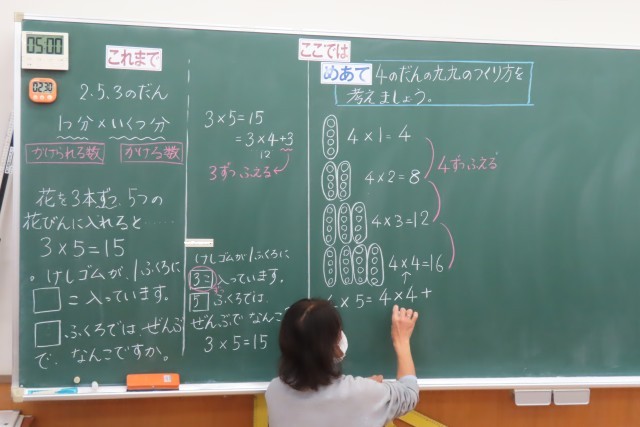 05:00
02:30
これまで
2.5.3のだん
1つ分×いくつ分
かけられる数
かける数
花を3本ずつ、5つの
花びんに入れると……
3×5=15
。けしゴムが、1ふくろに
□=入っています。
□ふくろでは、ぜんぶ
で、なんこですか。
3×5=15
=3×4+3
12
3ずつふえる
けしゴムが1ふくろに
3=入っています。
5ふくろでは、
ぜんぶで なんこ
3×5=15
ここでは
めあて
4のだんの九九のつくり方を
考えましょう。
4×1=4
4×2=8
4×3=12
4×4=16
4ずつふえる
4×5=4×4+